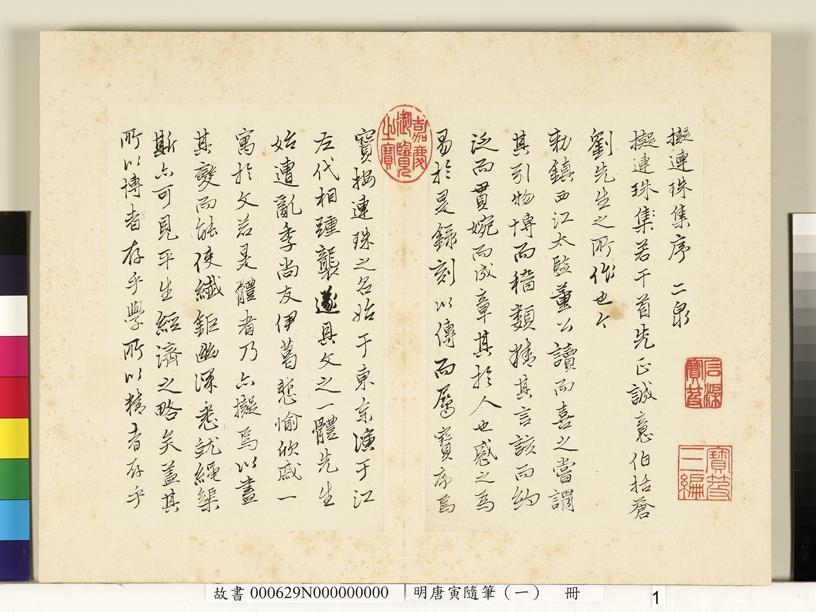 擬連珠集序 二泉
擬連珠集若干首先正誠意伯括蒼
劉先生之所作也今
勅鎮西江太監董公讀而喜之嘗謂
其引物博而稽類精其言該而約
泛而貫婉而成章其於人也感之為
易於是錄刻以傳而屬寶序焉
寶按連珠之名始于東京演于江
左代相踵襲遂具文之一體先生
始遭亂季尚友伊葛悲愉欣戚一
寓於文若是體者乃亦擬焉以盡
其變而能使纖鉅幽深悉就繩榘
斯亦可見平生經濟之略矣蓋其
所以博者存乎學所以精者存乎
石渠寶笈
寶笈三編
嘉慶御覽之寶
故書 000629N000000000 明唐寅隨筆（一） 冊 1